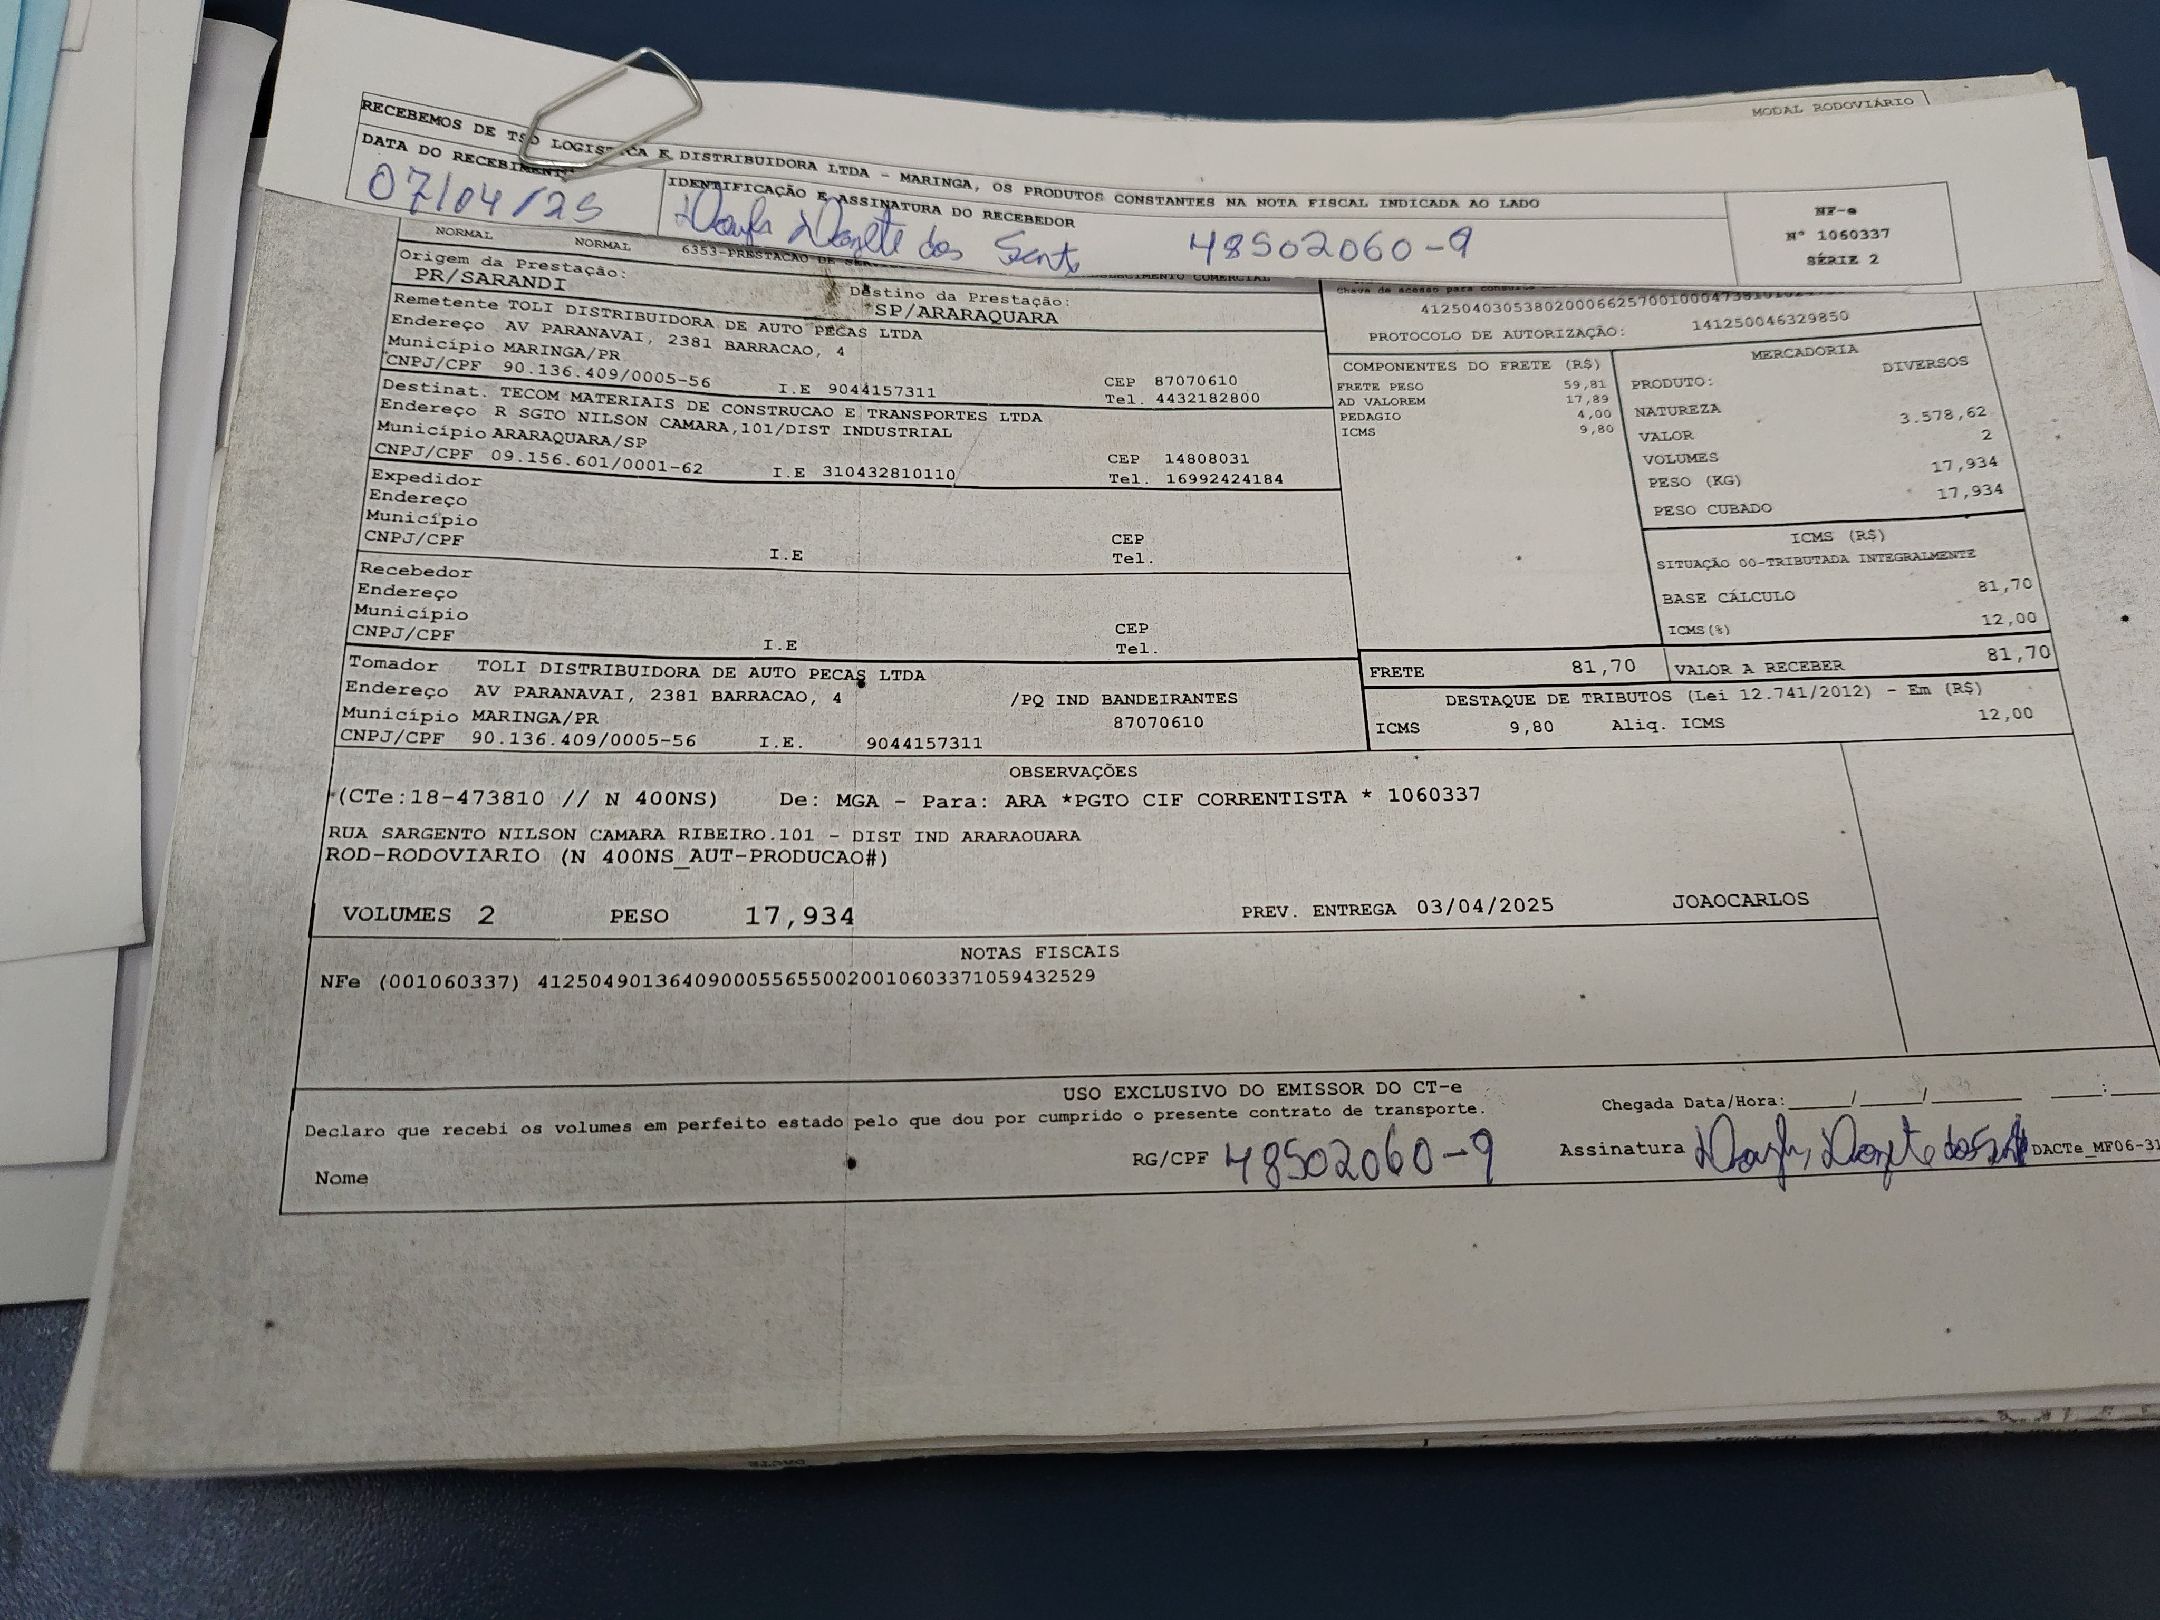 MODAL RODOVIÁRIO
RECEBEMOS DE TSD LOGISTICA E DISTRIBUIDORA LTDA - MARINGA, OS PRODUTOS CONSTANTES NA NOTA FISCAL INDICADA AO LADO
DATA DO RECEBIMENTO
07/04/25
IDENTIFICAÇÃO E ASSINATURA DO RECEBEDOR
dos 48502060-9
NF-e
Nº 1060337
SÉRIE 2
NORMAL NORMAL 6353-PRESTACAO DE COMERCIAL
Origem da Prestação:
PR/SARANDI
Destino da Prestação:
SP/ARARAQUARA
Chave de acesso para
PROTOCOLO DE AUTORIZAÇÃO: 141250046329850
Remetente TOLI DISTRIBUIDORA DE AUTO PECAS LTDA
Endereço AV PARANAVAI, 2381 BARRACAO, 4
Município MARINGA/PR
CEP 87070610
CNPJ/CPF 90.136.409/0005-56 I.E 9044157311 Tel. 4432182800
Destinat. TECOM MATERIAIS DE CONSTRUCAO E TRANSPORTES LTDA
Endereço R SGTO NILSON CAMARA,101/DIST INDUSTRIAL
Município ARARAQUARA/SP
CEP 14808031
CNPJ/CPF 09.156.601/0001-62 I.E 310432810110 Tel. 16992424184
Expedidor
Endereço
Município
CEP
CNPJ/CPF I.E Tel.
Recebedor
Endereço
Município
CEP
CNPJ/CPF I.E Tel.
Tomador TOLI DISTRIBUIDORA DE AUTO PECAS LTDA
Endereço AV PARANAVAI, 2381 BARRACAO, 4 /PQ IND BANDEIRANTES
Município MARINGA/PR 87070610
CNPJ/CPF 90.136.409/0005-56 I.E. 9044157311
COMPONENTES DO FRETE (R$)
FRETE PESO 59,81
AD VALOREM 17,89
PEDAGIO 4,00
ICMS 9,80
MERCADORIA
PRODUTO: DIVERSOS
NATUREZA
VALOR 3.578,62
VOLUMES 2
PESO (KG) 17,934
PESO CUBADO 17,934
ICMS (R$)
SITUAÇÃO 00-TRIBUTADA INTEGRALMENTE
BASE CÁLCULO 81,70
ICMS(%) 12,00
FRETE 81,70 VALOR A RECEBER 81,70
DESTAQUE DE TRIBUTOS (Lei 12.741/2012) - Em (R$)
ICMS 9,80 Aliq. ICMS 12,00
OBSERVAÇÕES
(CTe:18-473810 // N 400NS) De: MGA - Para: ARA *PGTO CIF CORRENTISTA * 1060337
RUA SARGENTO NILSON CAMARA RIBEIRO.101 - DIST IND ARARAQUARA
ROD-RODOVIARIO (N 400NS_AUT-PRODUCAO#)
VOLUMES 2 PESO 17,934 PREV. ENTREGA 03/04/2025 JOAOCARLOS
NOTAS FISCAIS
NFe (001060337) 41250490136409000556550020010603371059432529
USO EXCLUSIVO DO EMISSOR DO CT-e
Declaro que recebi os volumes em perfeito estado pelo que dou por cumprido o presente contrato de transporte.
Chegada Data/Hora:_____/_____/_______ ____:
Nome RG/CPF 48502060-9 Assinatura DACTe_MF06-31
DACTE